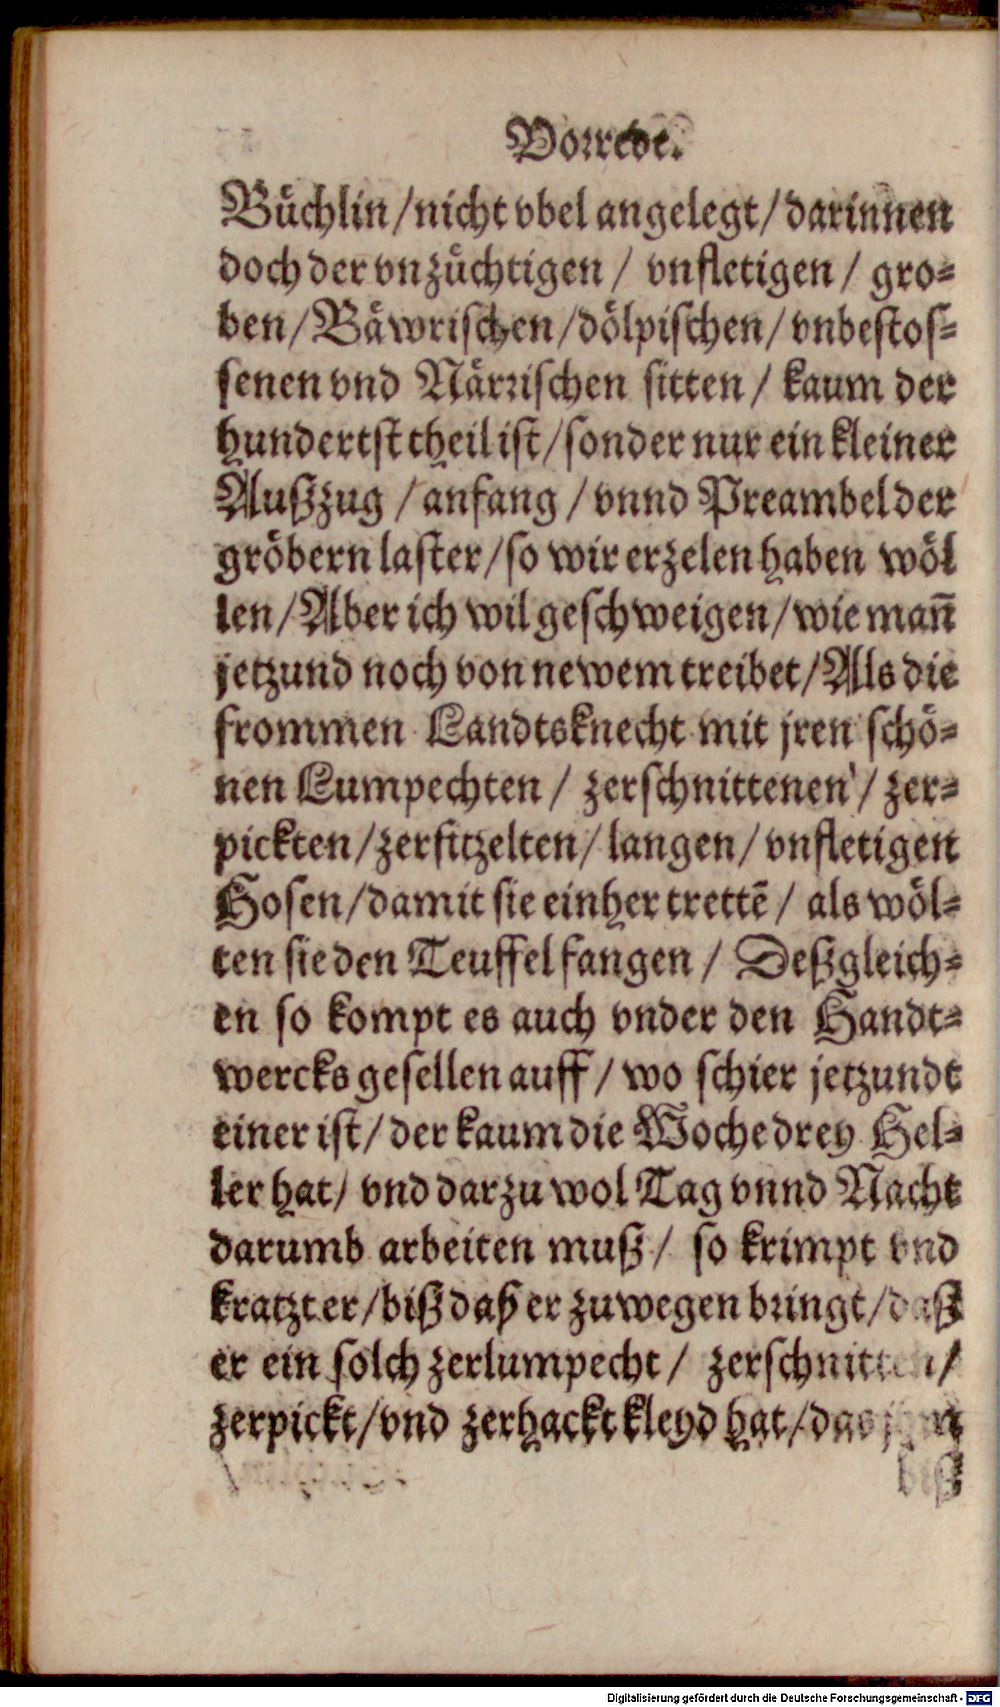 Vorrede.
Buͤchlin / nicht vbel angelegt / darinnen
doch der vnzuͤchtigen / vnfletigen / gro-
ben / Baͤwrischen / doͤlpischen / vnbestos-
senen vnd Naͤrrischen sitten / kaum der
hundertst theil ist / sonder nur ein kleiner
Außzug / anfang / vnnd Preambel der
groͤbern laster / so wir erzelen haben woͤl
len / Aber ich wil geschweigen / wie mañ
jetzund noch von newem treibet / Als die
frommen Landtsknecht mit jren schoͤ-
nen Lumpechten / zerschnittenen / zer-
pickten / zerfitzelten / langen / vnfletigen
Hosen / damit sie einher trettē / als woͤl-
ten sie den Teuffel fangen / Deßgleich-
en so kompt es auch vnder den Handt-
wercks gesellen auff / wo schier jetzundt
einer ist / der kaum die Woche drey Hel-
ler hat / vnd darzu wol Tag vnnd Nacht
darumb arbeiten muß / so krimpt vnd
kratzt er / biß daß er zuwegen bringt / daß
er ein solch zerlumpecht / zerschnitten /
zerpickt / vnd zerhackt kleyd hat / das
biß
Digitalisierung gefördert durch die Deutsche Forschungsgemeinschaft - DFG